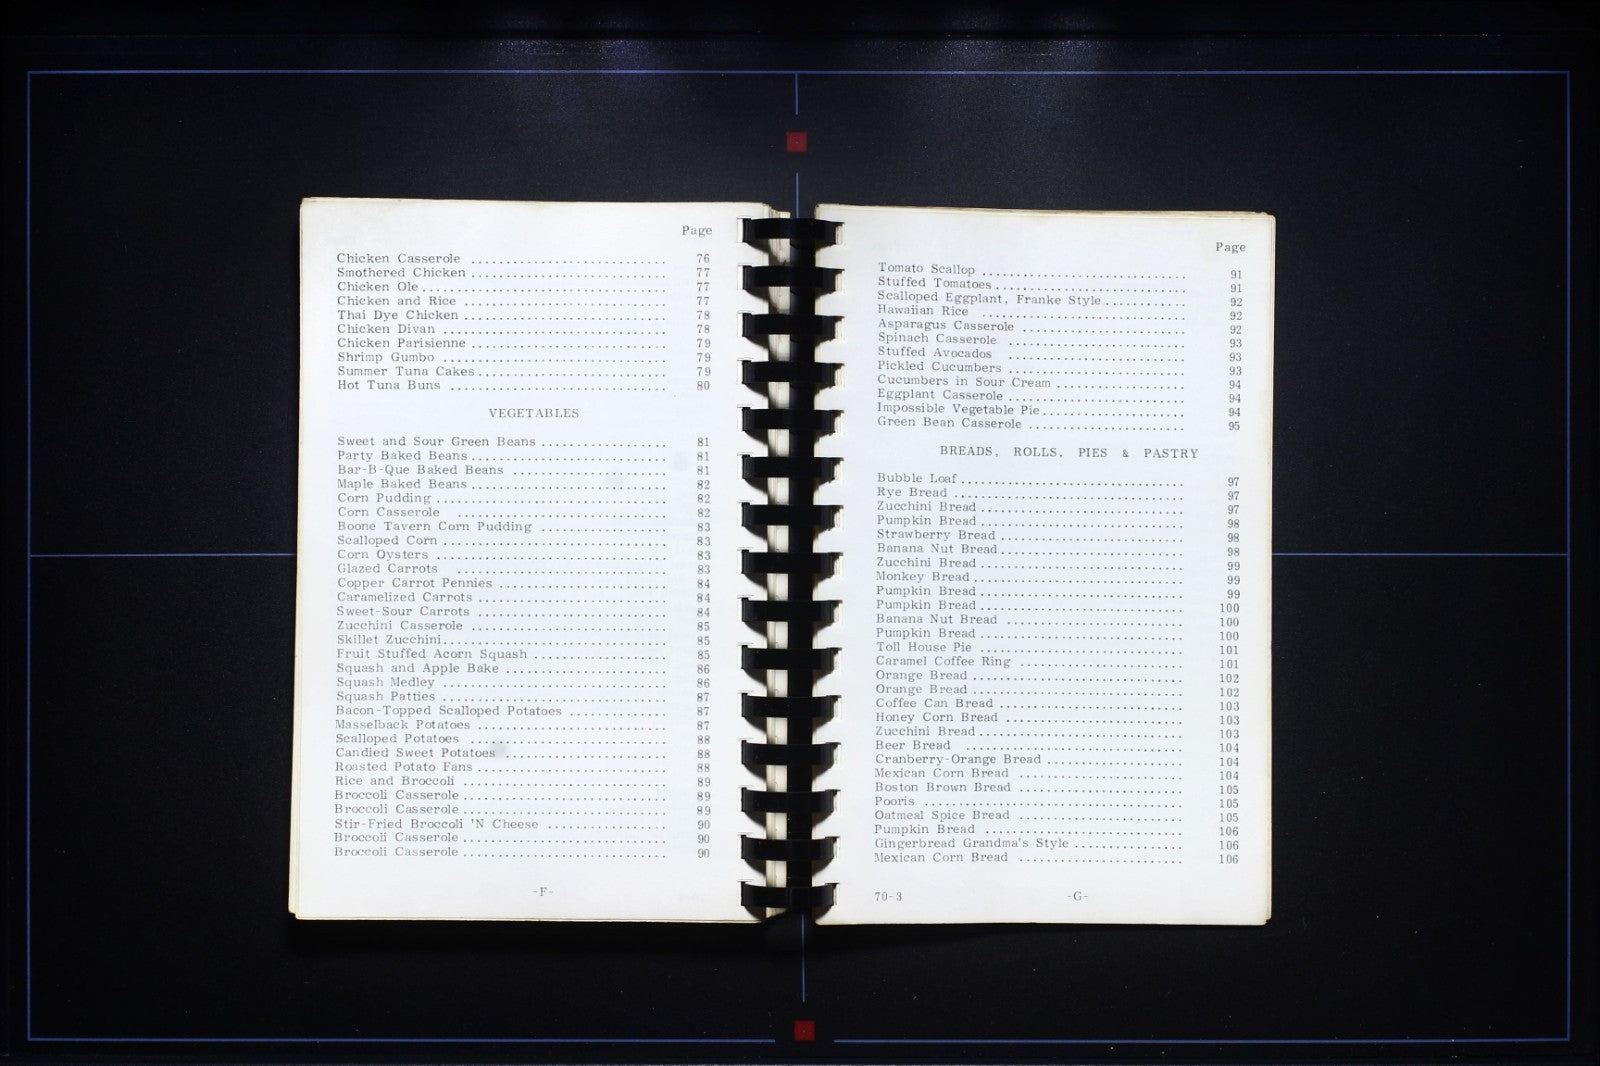 Page
Chicken Casserole ............................ 76
Smothered Chicken ............................ 77
Chicken Ole ............................ 77
Chicken and Rice ............................ 77
Thai Dye Chicken ............................ 78
Chicken Divan ............................ 78
Chicken Parisienne ............................ 79
Shrimp Gumbo ............................ 79
Summer Tuna Cakes ............................ 79
Hot Tuna Buns ............................ 80
VEGETABLES
Sweet and Sour Green Beans ................... 81
Party Baked Beans ............................ 81
Bar-B-Que Baked Beans ....................... 81
Maple Baked Beans ............................ 82
Corn Pudding ............................ 82
Corn Casserole ............................ 82
Boone Tavern Corn Pudding ................... 83
Scalloped Corn ............................ 83
Corn Oysters ............................ 83
Glazed Carrots ............................ 83
Copper Carrot Pennies ........................ 84
Caramelized Carrots ............................ 84
Sweet-Sour Carrots ............................ 84
Zucchini Casserole ............................ 85
Skillet Zucchini ............................ 85
Fruit Stuffed Acorn Squash .................... 85
Squash and Apple Bake ....................... 86
Squash Medley ............................ 86
Squash Patties ............................ 87
Bacon-Topped Scalloped Potatoes .............. 87
Masselback Potatoes ............................ 87
Scalloped Potatoes ............................ 88
Candied Sweet Potatoes ........................ 88
Roasted Potato Fans ............................ 88
Rice and Broccoli ............................ 89
Broccoli Casserole ............................ 89
Broccoli Casserole ............................ 89
Stir-Fried Broccoli 'N Cheese ................. 90
Broccoli Casserole ............................ 90
Broccoli Casserole ............................ 90
-F-
Page
Tomato Scallop ............................ 91
Stuffed Tomatoes ............................ 91
Scalloped Eggplant, Franke Style ............ 92
Hawaiian Rice ............................ 92
Asparagus Casserole ........................ 92
Spinach Casserole ........................ 93
Stuffed Avocados ........................ 93
Pickled Cucumbers ........................ 93
Cucumbers in Sour Cream ................... 94
Eggplant Casserole ........................ 94
Impossible Vegetable Pie ..................... 94
Green Bean Casserole ....................... 95
BREADS, ROLLS, PIES & PASTRY
Bubble Loaf ............................ 97
Rye Bread ............................ 97
Zucchini Bread ............................ 97
Pumpkin Bread ............................ 98
Strawberry Bread ............................ 98
Banana Nut Bread ............................ 98
Zucchini Bread ............................ 99
Monkey Bread ............................ 99
Pumpkin Bread ............................ 99
Pumpkin Bread ............................ 100
Banana Nut Bread ............................ 100
Pumpkin Bread ............................ 100
Toll House Pie ............................ 101
Caramel Coffee Ring ........................ 101
Orange Bread ............................ 102
Orange Bread ............................ 102
Coffee Can Bread ............................ 103
Honey Corn Bread ............................ 103
Zucchini Bread ............................ 103
Beer Bread ............................ 104
Cranberry-Orange Bread ..................... 104
Mexican Corn Bread ........................ 104
Boston Brown Bread ........................ 105
Pooris ............................ 105
Oatmeal Spice Bread ........................ 105
Pumpkin Bread ............................ 106
Gingerbread Grandma's Style ................ 106
Mexican Corn Bread ........................ 106
70-3 -G-